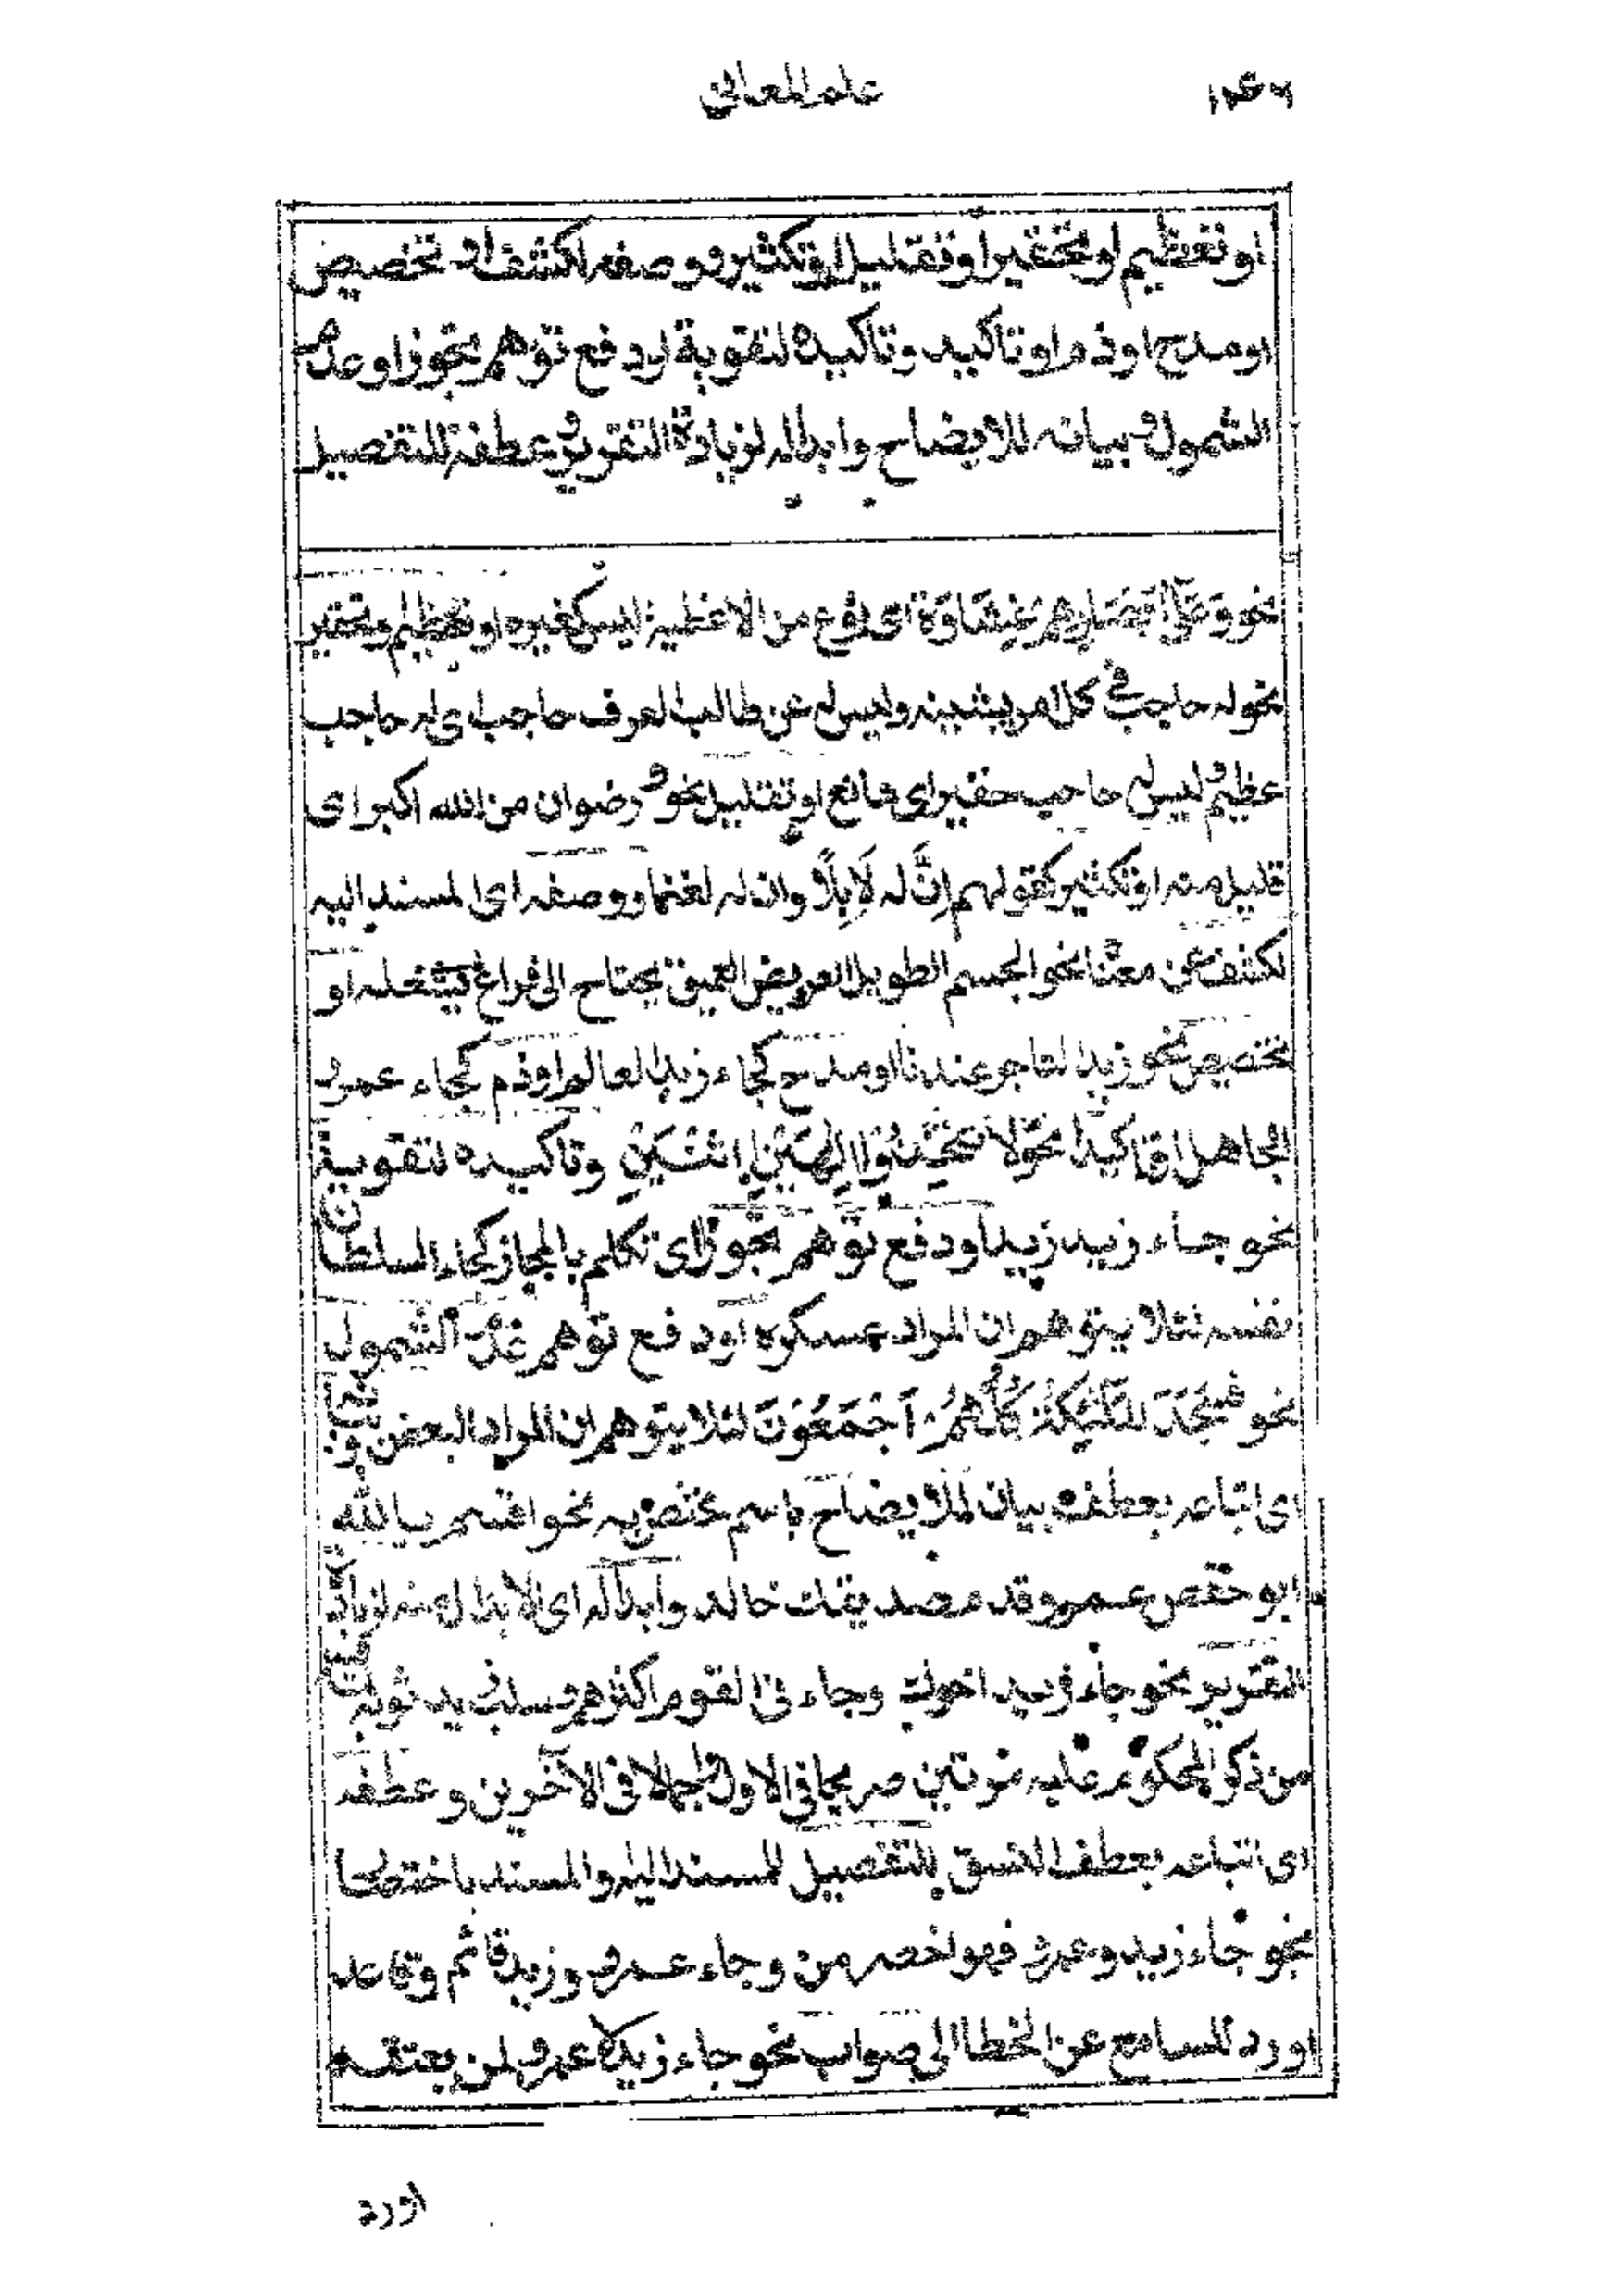 علم المعاني
او تعظيم او تحقير او تقليل او تكثير ووصفه لكشف او تخصيص
او مدح او ذم او تاكيد وتاكيده لتقوية او دفع توهم تجوز او عدم
الشمول وبيانه للايضاح وابداله لزيادة التقرير وعطفه للتفصيل
نحو وَعَلٰٓى اَبْصَارِهِمْ غِشَاوَةٌ اى نوع من الاغطية ليس كغيره او تعظيم وتحقير
نحو له حاجب فى كل امر يشينه وليس له عن طالب العرف حاجب اى له حاجب
عظيم وليس له حاجب حقير اى مانع او تقليل نحو ورضوان من الله اكبر اى
قليل منه او تكثير كقولهم اِنَّ له لَاِبِلًا وان له لغنما ووصفه اى المسند اليه
لكشف عن معناه نحو الجسم الطويل العريض العميق يحتاج الى فراغ يشغله او
تخصيص نحو زيد التاجر عندنا او مدح كجاء زيد العالم او ذم كجاء عمرو
الجاهل او تاكيد نحو لَا تَتَّخِذُوْا اِلٰهَيْنِ اثْنَيْنِ وتاكيده لتقوية
نحو جاء زيد زيد او دفع توهم تجوز اى تكلم بالمجاز كجاء السلطان
نفسه لئلا يتوهم ان المراد عسكره او دفع توهم عدم الشمول
نحو فَسَجَدَ الْمَلٰٓئِكَةُ كُلُّهُمْ اَجْمَعُوْنَ لئلا يتوهم ان المراد البعض وبيانه
اى اتباعه بعطف بيان للايضاح باسم مختص به نحو اقسم بالله
ابو حفص عمر وقدم صديقك خالد وابداله اى الابدال منه لزيادة
التقرير نحو جاء زيد اخوك وجاء نى القوم اكثرهم وسلب زيد ثوبه
من ذكر المحكوم عليه مرتين صريحا فى الاول واجمالا فى الآخرين وعطفه
اى اتباعه بعطف النسق للتفصيل للمسند اليه والمسند باختصار
نحو جاء زيد وعمرو فهو اخصر من وجاء عمرو وزيد قائم وقاعد
او رد للسامع عن الخطا الى صواب نحو جاء زيد لا عمرو لمن يعتقد
اورد